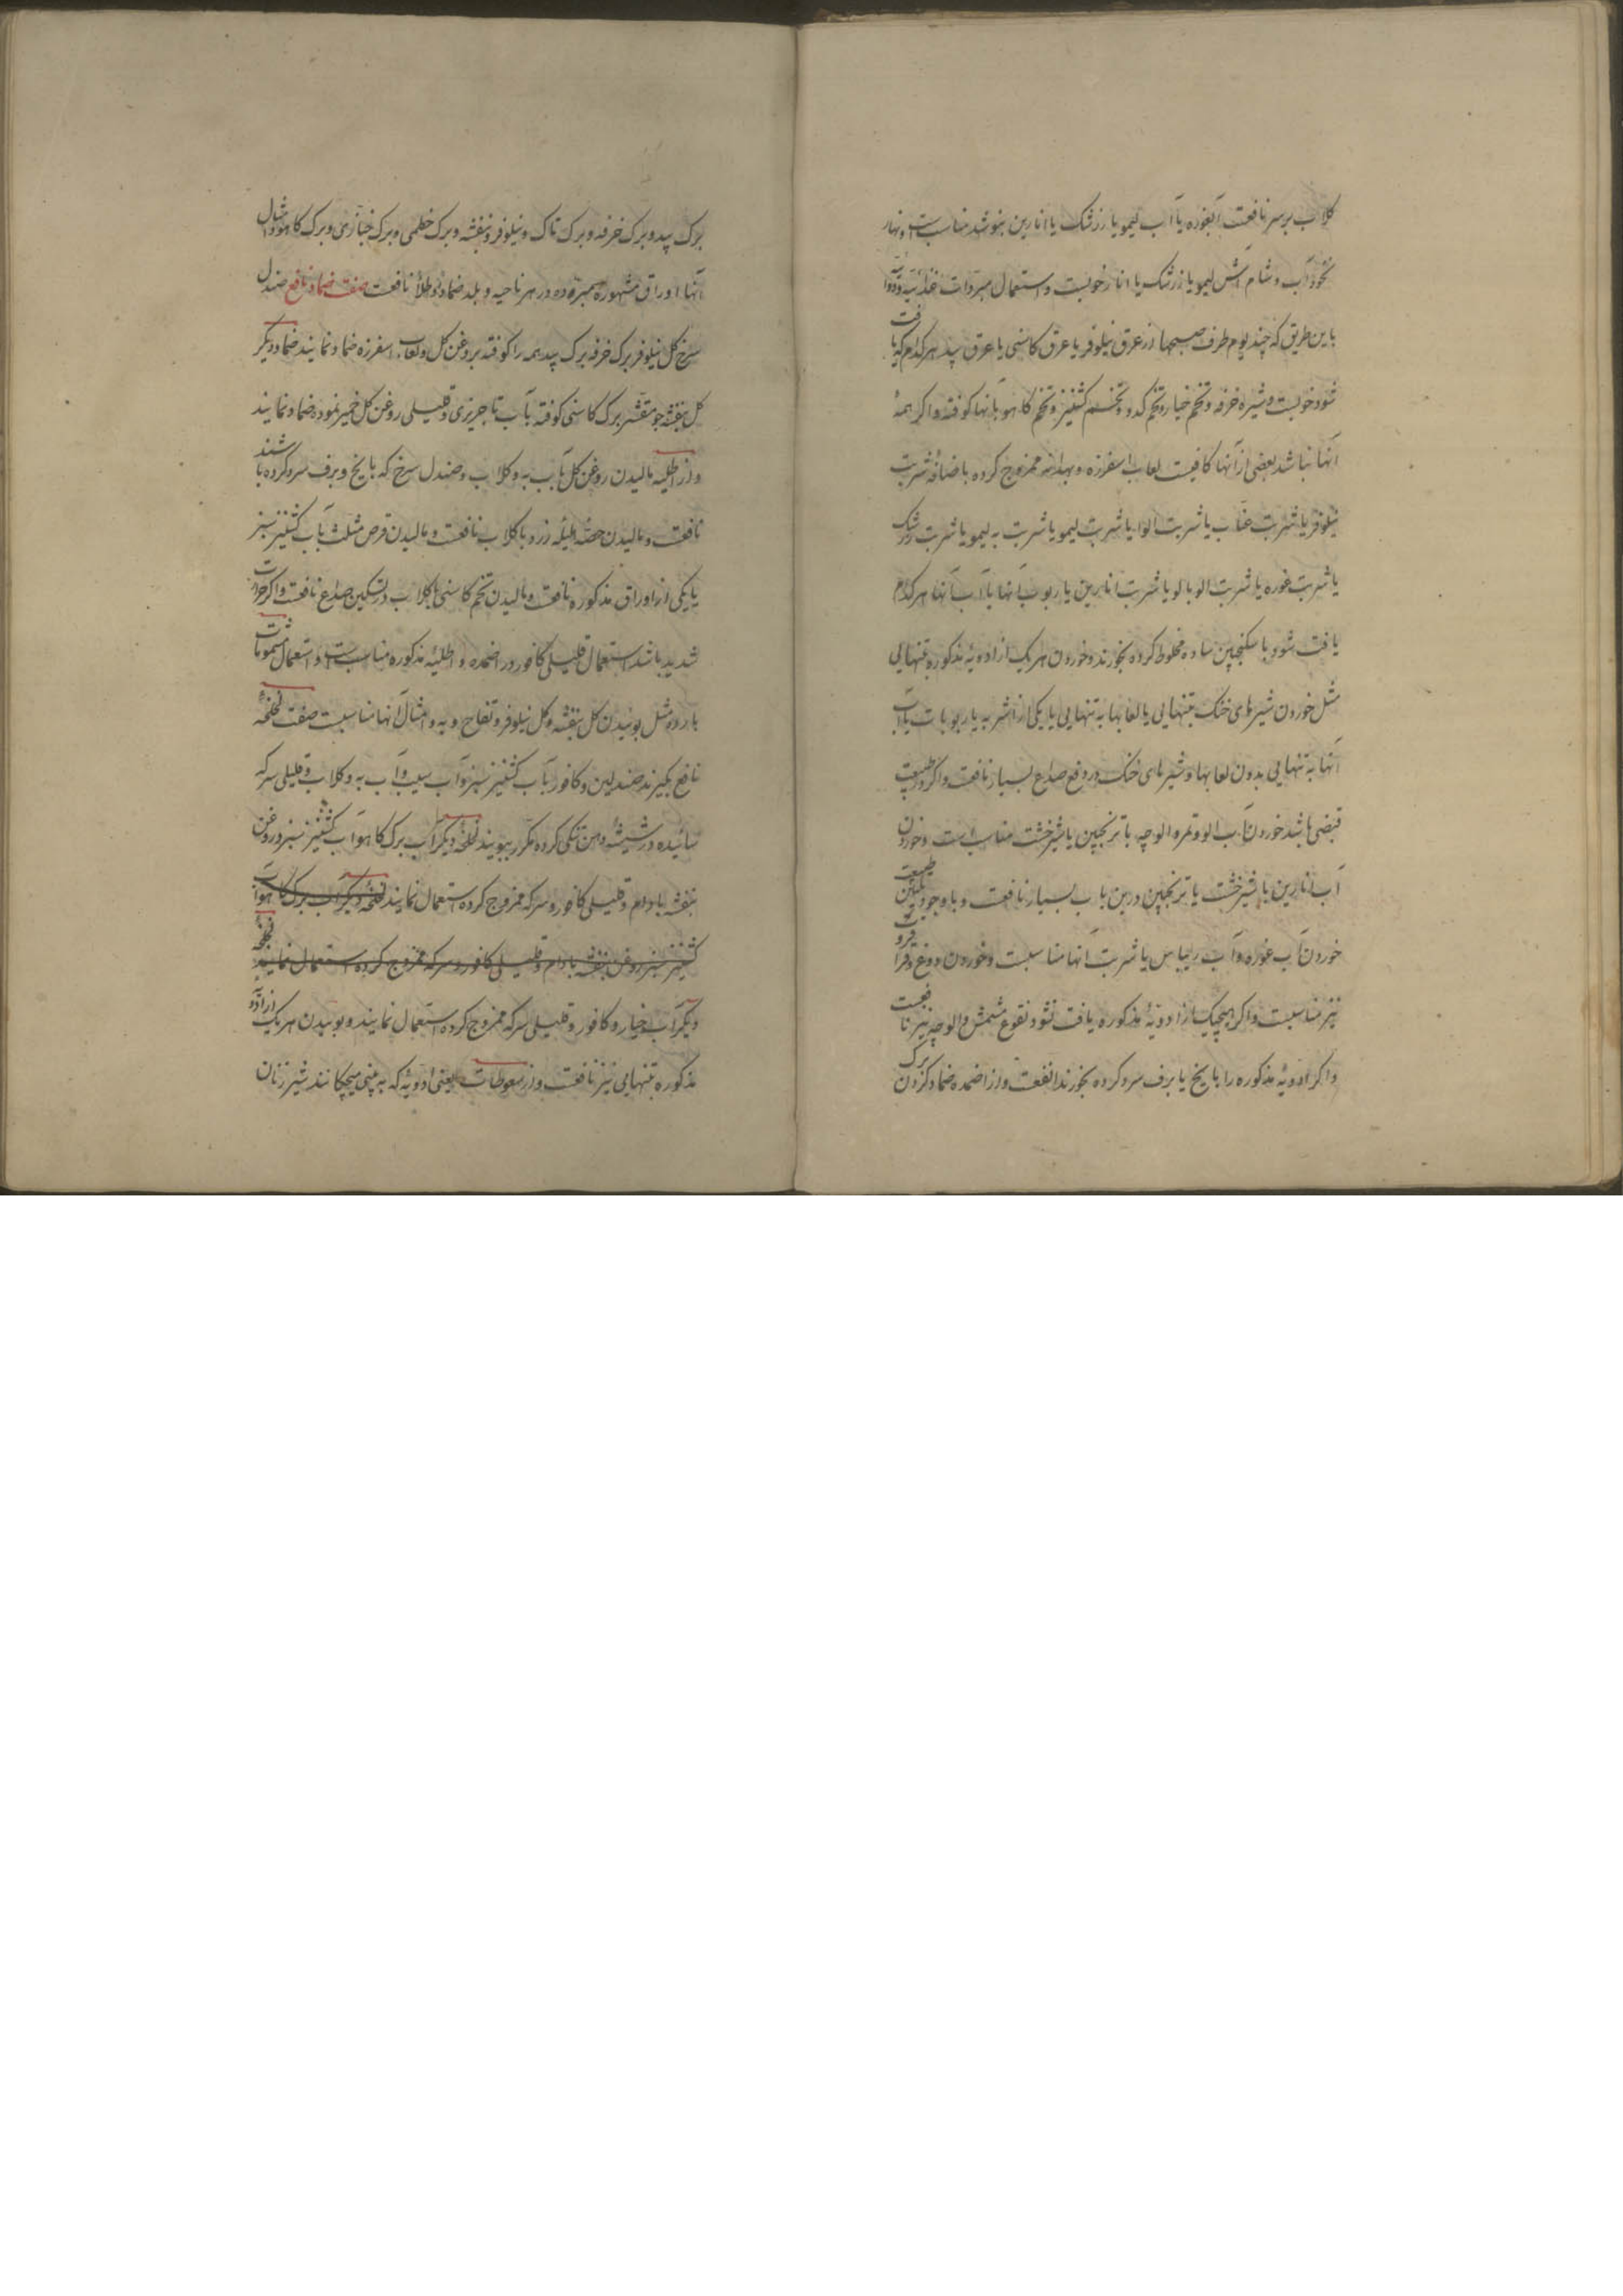 کلاب بر سر نافعست آبغوره یا آب لیمو یا زرشک یا انارین بنوشد مناسبست و نهار
نخودآب و شام آش لیمو یا زرشک یا انار خوبست و استعمال مبردات غذائیه و دوائیه
باین طریق که چند یوم طرف صبحها از عرق نیلوفر یا عرق کاسنی یا عرق بید هر کدام که یافت
شود خوبست و شیره خرفه و تخم خیار و تخم کدو و تخم کشنیز و تخم کاهو بآنها کوفته و اکر همهٔ
آنها نباشد بعضی از آنها کافیست لعاب اسفرزه و بهدانه ممزوج کرده باضافهٔ شربت
نیلوفر یا شربت عناب یا شربت الو یا شربت لیمو یا شربت به لیمو یا شربت زرشک
یا شربت غوره یا شربت الوبالو یا شربت انارین یا ربوب آنها یا آب آنها هر کدام
یافت شود با سکنجبین ساده مخلوط کرده بخورند و خوردن هر یک از ادویهٔ مذکوره بتنهایی
مثل خوردن شیرهای خنک بتنهایی یا لعابها به تنهایی یا یکی از اشربه یا ربوبات یا آب
آنها به تنهایی بدون لعابها و شیرهای خنک در دفع صداع بسیار نافعست و اکر در طبیعت
قبضی باشد خوردن آب الو و تمر و الوچه با ترنجبین یا شیرخشت مناسب است و خوردن
آب انارین با شیرخشت یا ترنجبین درین باب بسیار نافعست و با وجود تلیین طبیعت
خوردن آب غوره و آب ریباس یا شربت آنها مناسبست و خوردن دوغ و قراقروت
نیز مناسبست و اکر هیچیک از ادویهٔ مذکوره یافت نشود نقوع مشمش و الوچه نیز نافعست
و اکر ادویهٔ مذکوره را با یخ یا برف سرد کرده بخورند انفعست و از اضمده ضماد کردن برک
برک بید و برک خرفه و برک تاک و نیلوفر و بنفشه و برک خطمی و برک خبازی و برک کاهو و امثال
آنها اوراق مشهوره مبرده در هر ناحیه و بلد ضماداً و طلاءً نافعست صفت ضماد نافع صندل
سرخ کل نیلوفر برک خرفه برک بید همه را کوفته بروغن کل و لعاب اسفرزه ضماد نمایند ضماد دیکر
کل بنفشه جو مقشر برک کاسنی کوفته بآب تاجریزی و قلیلی روغن کل خمیر نموده ضماد نمایند
و از اطلیه مالیدن روغن کل بآب به و کلاب و صندل سرخ که با یخ و برف سرد کرده باشند
نافعست و مالیدن حضه هلیله زرد با کلاب نافعست و مالیدن قرص مثلث بآب کشنیز سبز
یا یکی از اوراق مذکوره نافعست و مالیدن تخم کاسنی با کلاب در تسکین صداع نافعست و اکر حرارت
شدید باشد استعمال قلیلی کافور در اضمده و اطلیهٔ مذکوره مناسبست و استعمال مشمومات
بارده مثل بوئیدن کل بنفشه و کل نیلوفر و تفاح و به و امثال آنها مناسبست صفت لخلخهٔ
نافع بکیرند صندلین و کافور بآب کشنیز سبز و آب سیب و آب به و کلاب و قلیلی سرکه
سائیده در شیشهٔ دهن تنکی کرده مکرر ببویند لخلخهٔ دیکر آب برک کاهو آب کشنیز سبز و روغن
بنفشه بادام و قلیلی کافور و سرکه ممزوج کرده استعمال نمایند لخلخهٔ دیکر آب برک کاهو آب
کشنیز سبز روغن بنفشه بادام و قلیلی کافور و سرکه ممزوج کرده استعمال نمایند لخلخهٔ
دیکر آب خیار و کافور و قلیلی سرکه ممزوج کرده استعمال نمایند و بوئیدن هر یک از ادویه
مذکوره بتنهایی نیز نافعست و از سعوطات یعنی ادویهٔ که به بینی میچکانند شیر زنان